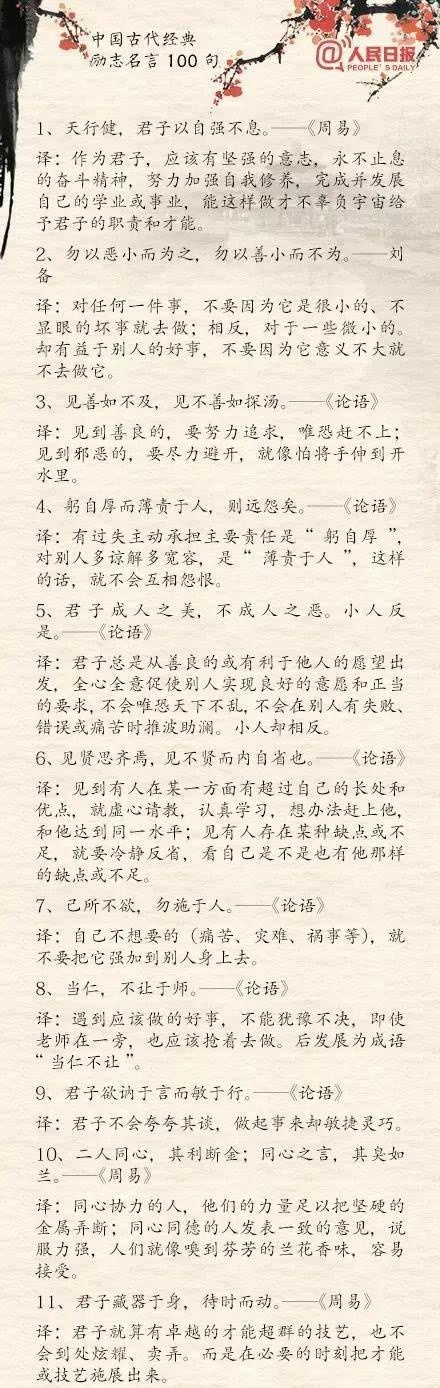 中国古代经典
励志名言100句
@人民日报
PEOPLE'S DAILY
1、天行健，君子以自强不息。——《周易》
译：作为君子，应该有坚强的意志，永不止息
的奋斗精神，努力加强自我修养，完成并发展
自己的学业或事业，能这样做才不辜负宇宙给
予君子的职责和才能。
2、勿以恶小而为之，勿以善小而不为。——刘
备
译：对任何一件事，不要因为它是很小的、不
显眼的坏事就去做；相反，对于一些微小的。
却有益于别人的好事，不要因为它意义不大就
不去做它。
3、见善如不及，见不善如探汤。——《论语》
译：见到善良的，要努力追求，唯恐赶不上；
见到邪恶的，要尽力避开，就像怕将手伸到开
水里。
4、躬自厚而薄责于人，则远怨矣。——《论语》
译：有过失主动承担主要责任是“躬自厚”，
对别人多谅解多宽容，是“薄责于人”，这样
的话，就不会互相怨恨。
5、君子成人之美，不成人之恶。小人反
是。——《论语》
译：君子总是从善良的或有利于他人的愿望出
发，全心全意促使别人实现良好的意愿和正当
的要求，不会唯恐天下不乱，不会在别人有失败、
错误或痛苦时推波助澜。小人却相反。
6、见贤思齐焉，见不贤而内自省也。——《论语》
译：见到有人在某一方面有超过自己的长处和
优点，就虚心请教，认真学习，想办法赶上他，
和他达到同一水平；见有人存在某种缺点或不
足，就要冷静反省，看自己是不是也有他那样
的缺点或不足。
7、己所不欲，勿施于人。——《论语》
译：自己不想要的（痛苦、灾难、祸事等），就
不要把它强加到别人身上去。
8、当仁，不让于师。——《论语》
译：遇到应该做的好事，不能犹豫不决，即使
老师在一旁，也应该抢着去做。后发展为成语
“当仁不让”。
9、君子欲讷于言而敏于行。——《论语》
译：君子不会夸夸其谈，做起事来却敏捷灵巧。
10、二人同心，其利断金；同心之言，其臭如
兰。——《周易》
译：同心协力的人，他们的力量足以把坚硬的
金属弄断；同心同德的人发表一致的意见，说
服力强，人们就像嗅到芬芳的兰花香味，容易
接受。
11、君子藏器于身，待时而动。——《周易》
译：君子就算有卓越的才能超群的技艺，也不
会到处炫耀、卖弄。而是在必要的时刻把才能
或技艺施展出来。